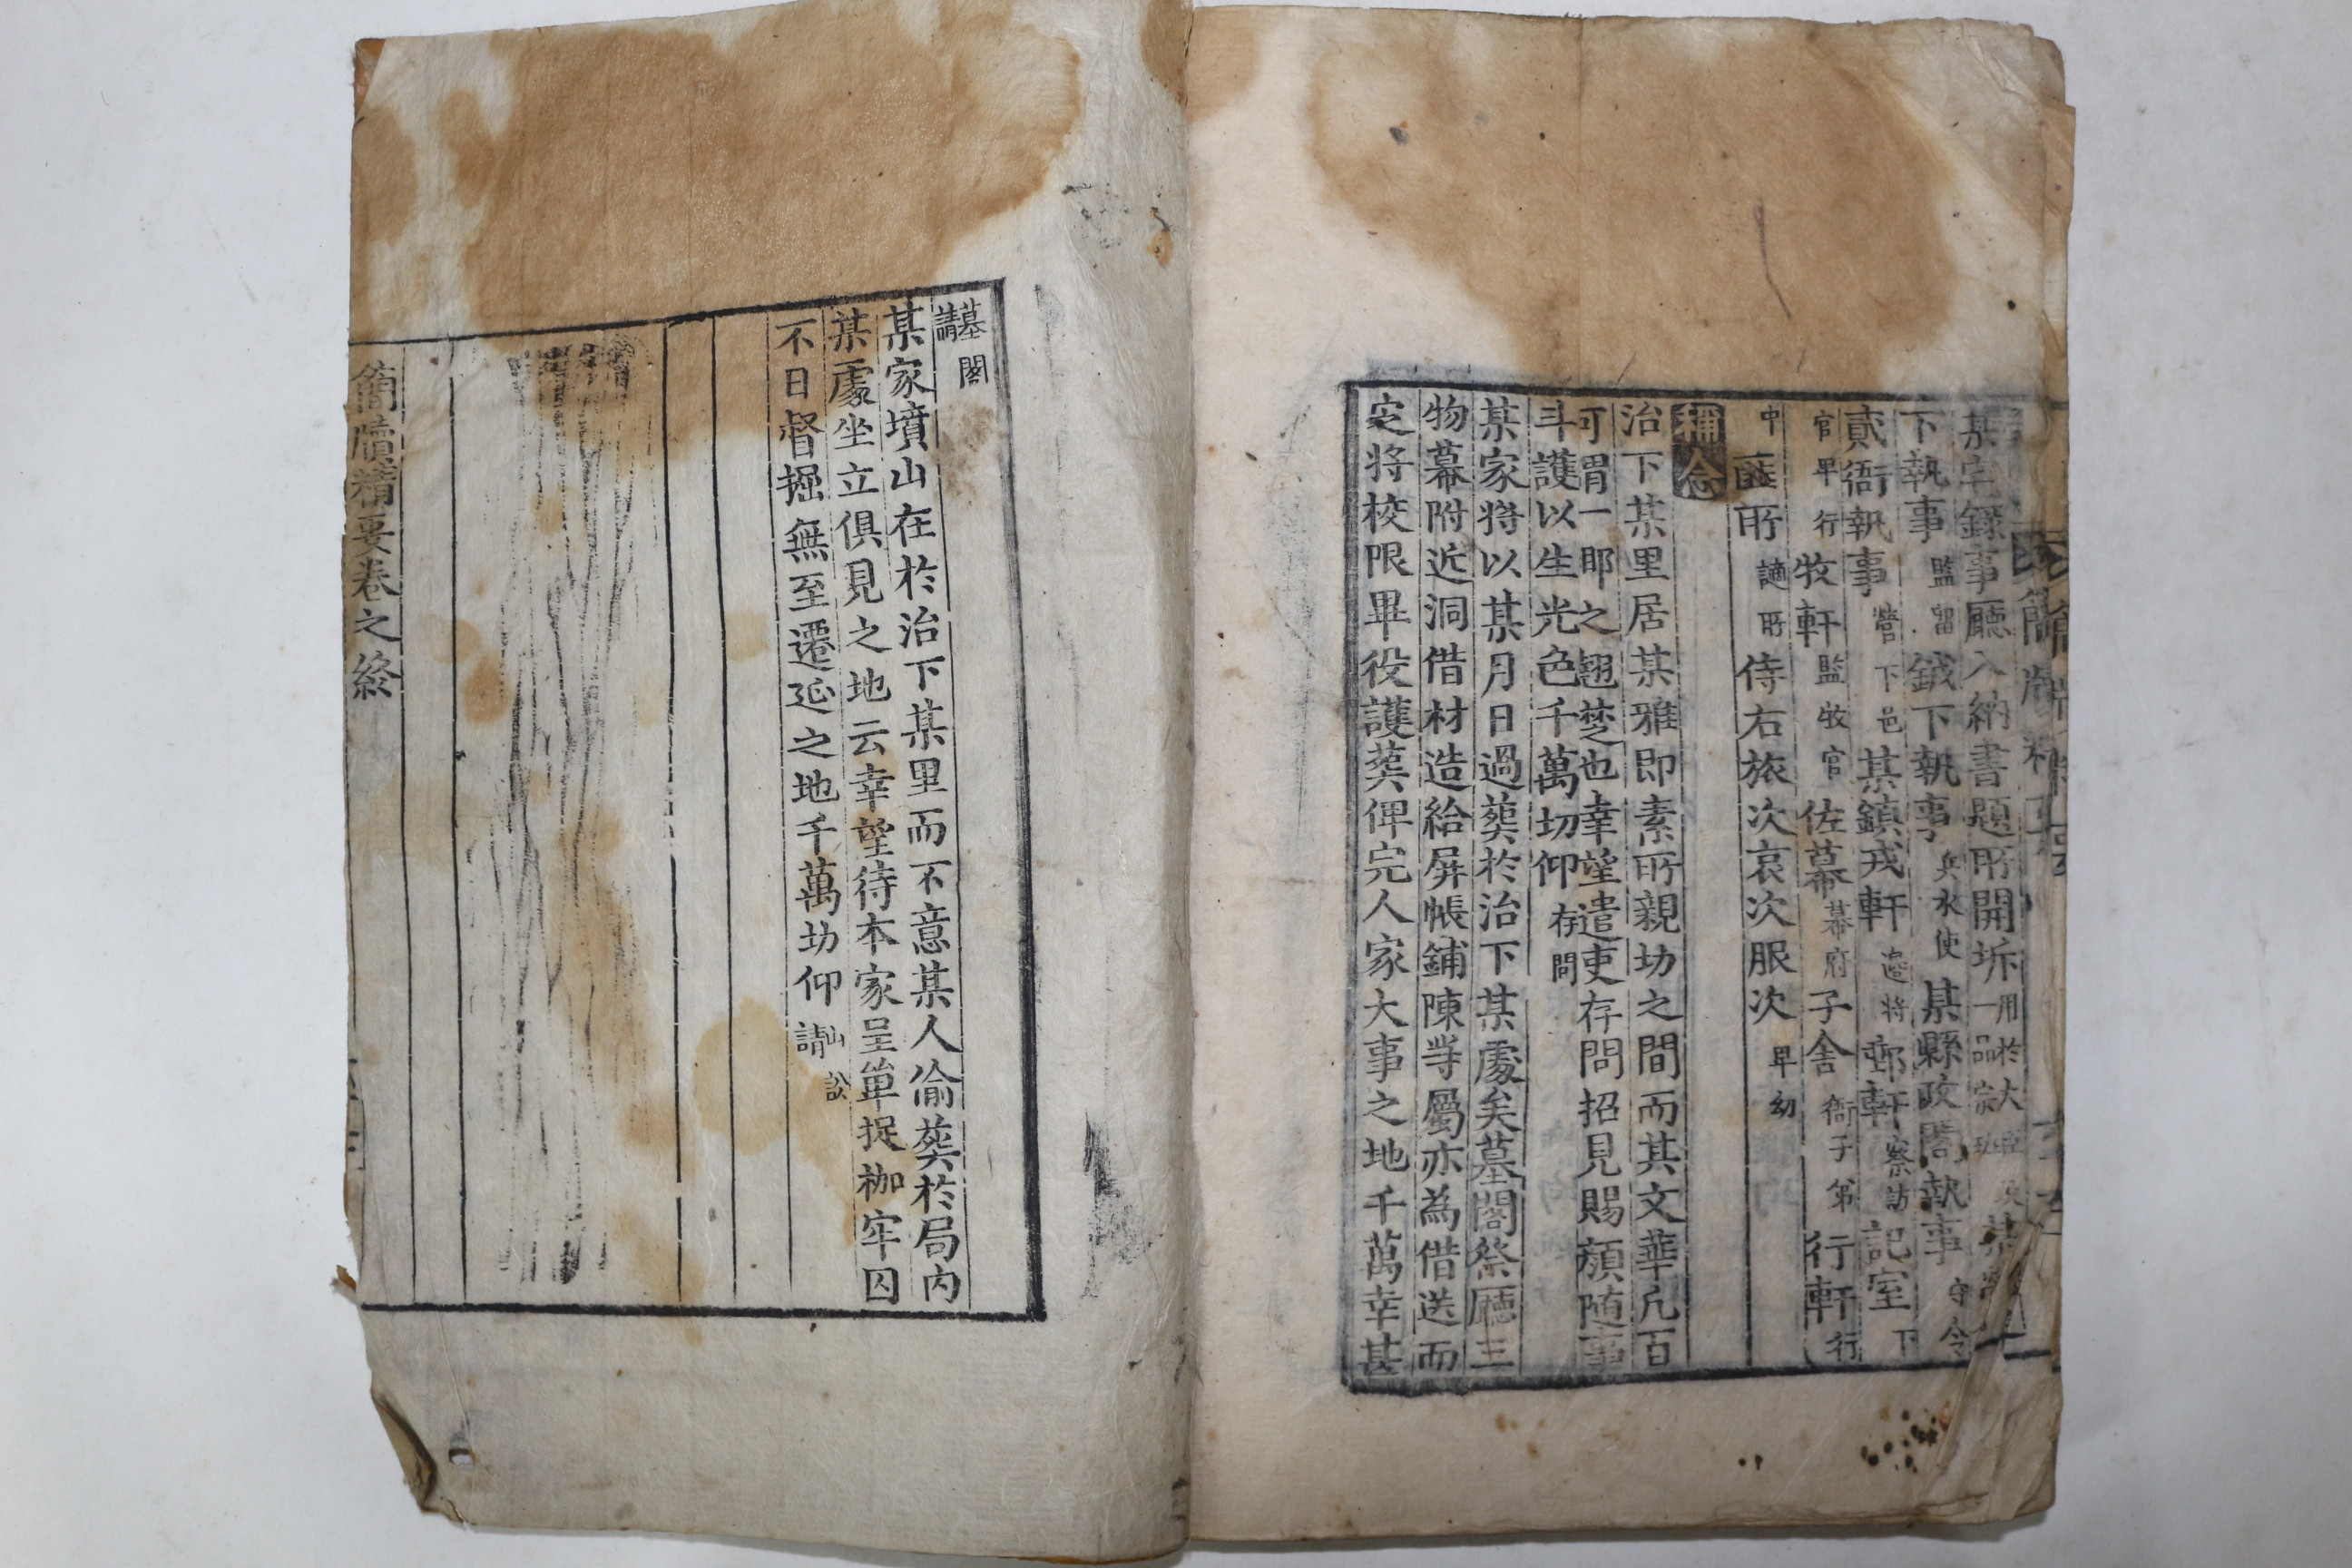 某宅錄事廳入納書題所開坼用於大臣及一品宗班某營
下執事監留鉞下執事兵水使某縣政閤執事守令
貳衙執事營下邑某鎭戎軒邊將郵軒察訪記室下
官早行牧軒監牧官佐幕幕府子舍衙子弟行軒行
中匧所謫所侍右旅次哀次服次早幼
稱念
治下某里居某雅即素所親切之間而其文華凡百
可謂一耶之翹楚也幸望遣吏存問招見賜顔随事
斗護以生光色千萬切仰存問
某家將以某月日過葬於治下某處矣墓閣祭廳三
物幕附近洞借材造給屏帳鋪陳等屬亦為借送而
定將校限畢役護葬俾完人家大事之地千萬幸甚
墓閣請
某家墳山在於治下某里而不意某人偷葬於局內
某處坐立俱見之地云幸望待本家呈單捉枷牢囚
不日督掘無至遷延之地千萬切仰山訟請
簡牘精要卷之終